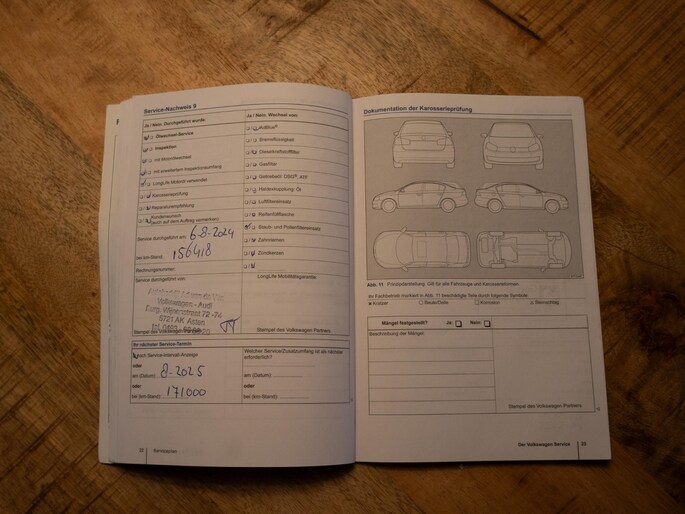 Service-Nachweis 9
Ja / Nein. Durchgeführt wurde:
Ölwechsel-Service
Inspektion:
mit Motorölwechsel
mit erweitertem Inspektionsumfang
LongLife Motoröl verwendet
Karosserieprüfung
Reparaturempfehlung
Kundenwunsch
(auch auf dem Auftrag vermerken)
Service durchgeführt am: 6-8-2024
bei km-Stand: 156418
Rechnungsnummer
Service durchgeführt von:
Volkswagen - Audi
5721 AK Asten
Stempel des Volkswagen Partners
Ja / Nein. Wechsel von:
AdBlue®
Bremsflüssigkeit
Dieselkraftstofffilter
Gasfilter
Getriebeöl: DSG®, ASG
Haldexkupplung: Öl
Luftfiltereinsatz
Reifenfüllflasche
Staub- und Pollenfiltereinsatz
Zahnriemen
Zündkerzen
LongLife Mobilitätsgarantie
Stempel des Volkswagen Partners
Ihr nächster Service-Termin
nach Service-Intervall-Anzeige
oder
am (Datum): 8-2025
oder
bei (km-Stand): 171000
Welcher Service/Zusatzumfang ist als nächster
erforderlich?
am (Datum):
bei (km-Stand):
Serviceplan
Dokumentation der Karosserieprüfung
Abb. 11 Prinzipdarstellung. Gilt für alle Fahrzeuge und Karosserieformen.
Ihr Fachbetrieb markiert in Abb. 11 beschädigte Teile durch folgende Symbole:
Kratzer Beule/Delle Korrosion Steinschlag
Mängel festgestellt? Ja: Nein:
Beschreibung der Mängel:
Stempel des Volkswagen Partners
Der Volkswagen Service 23